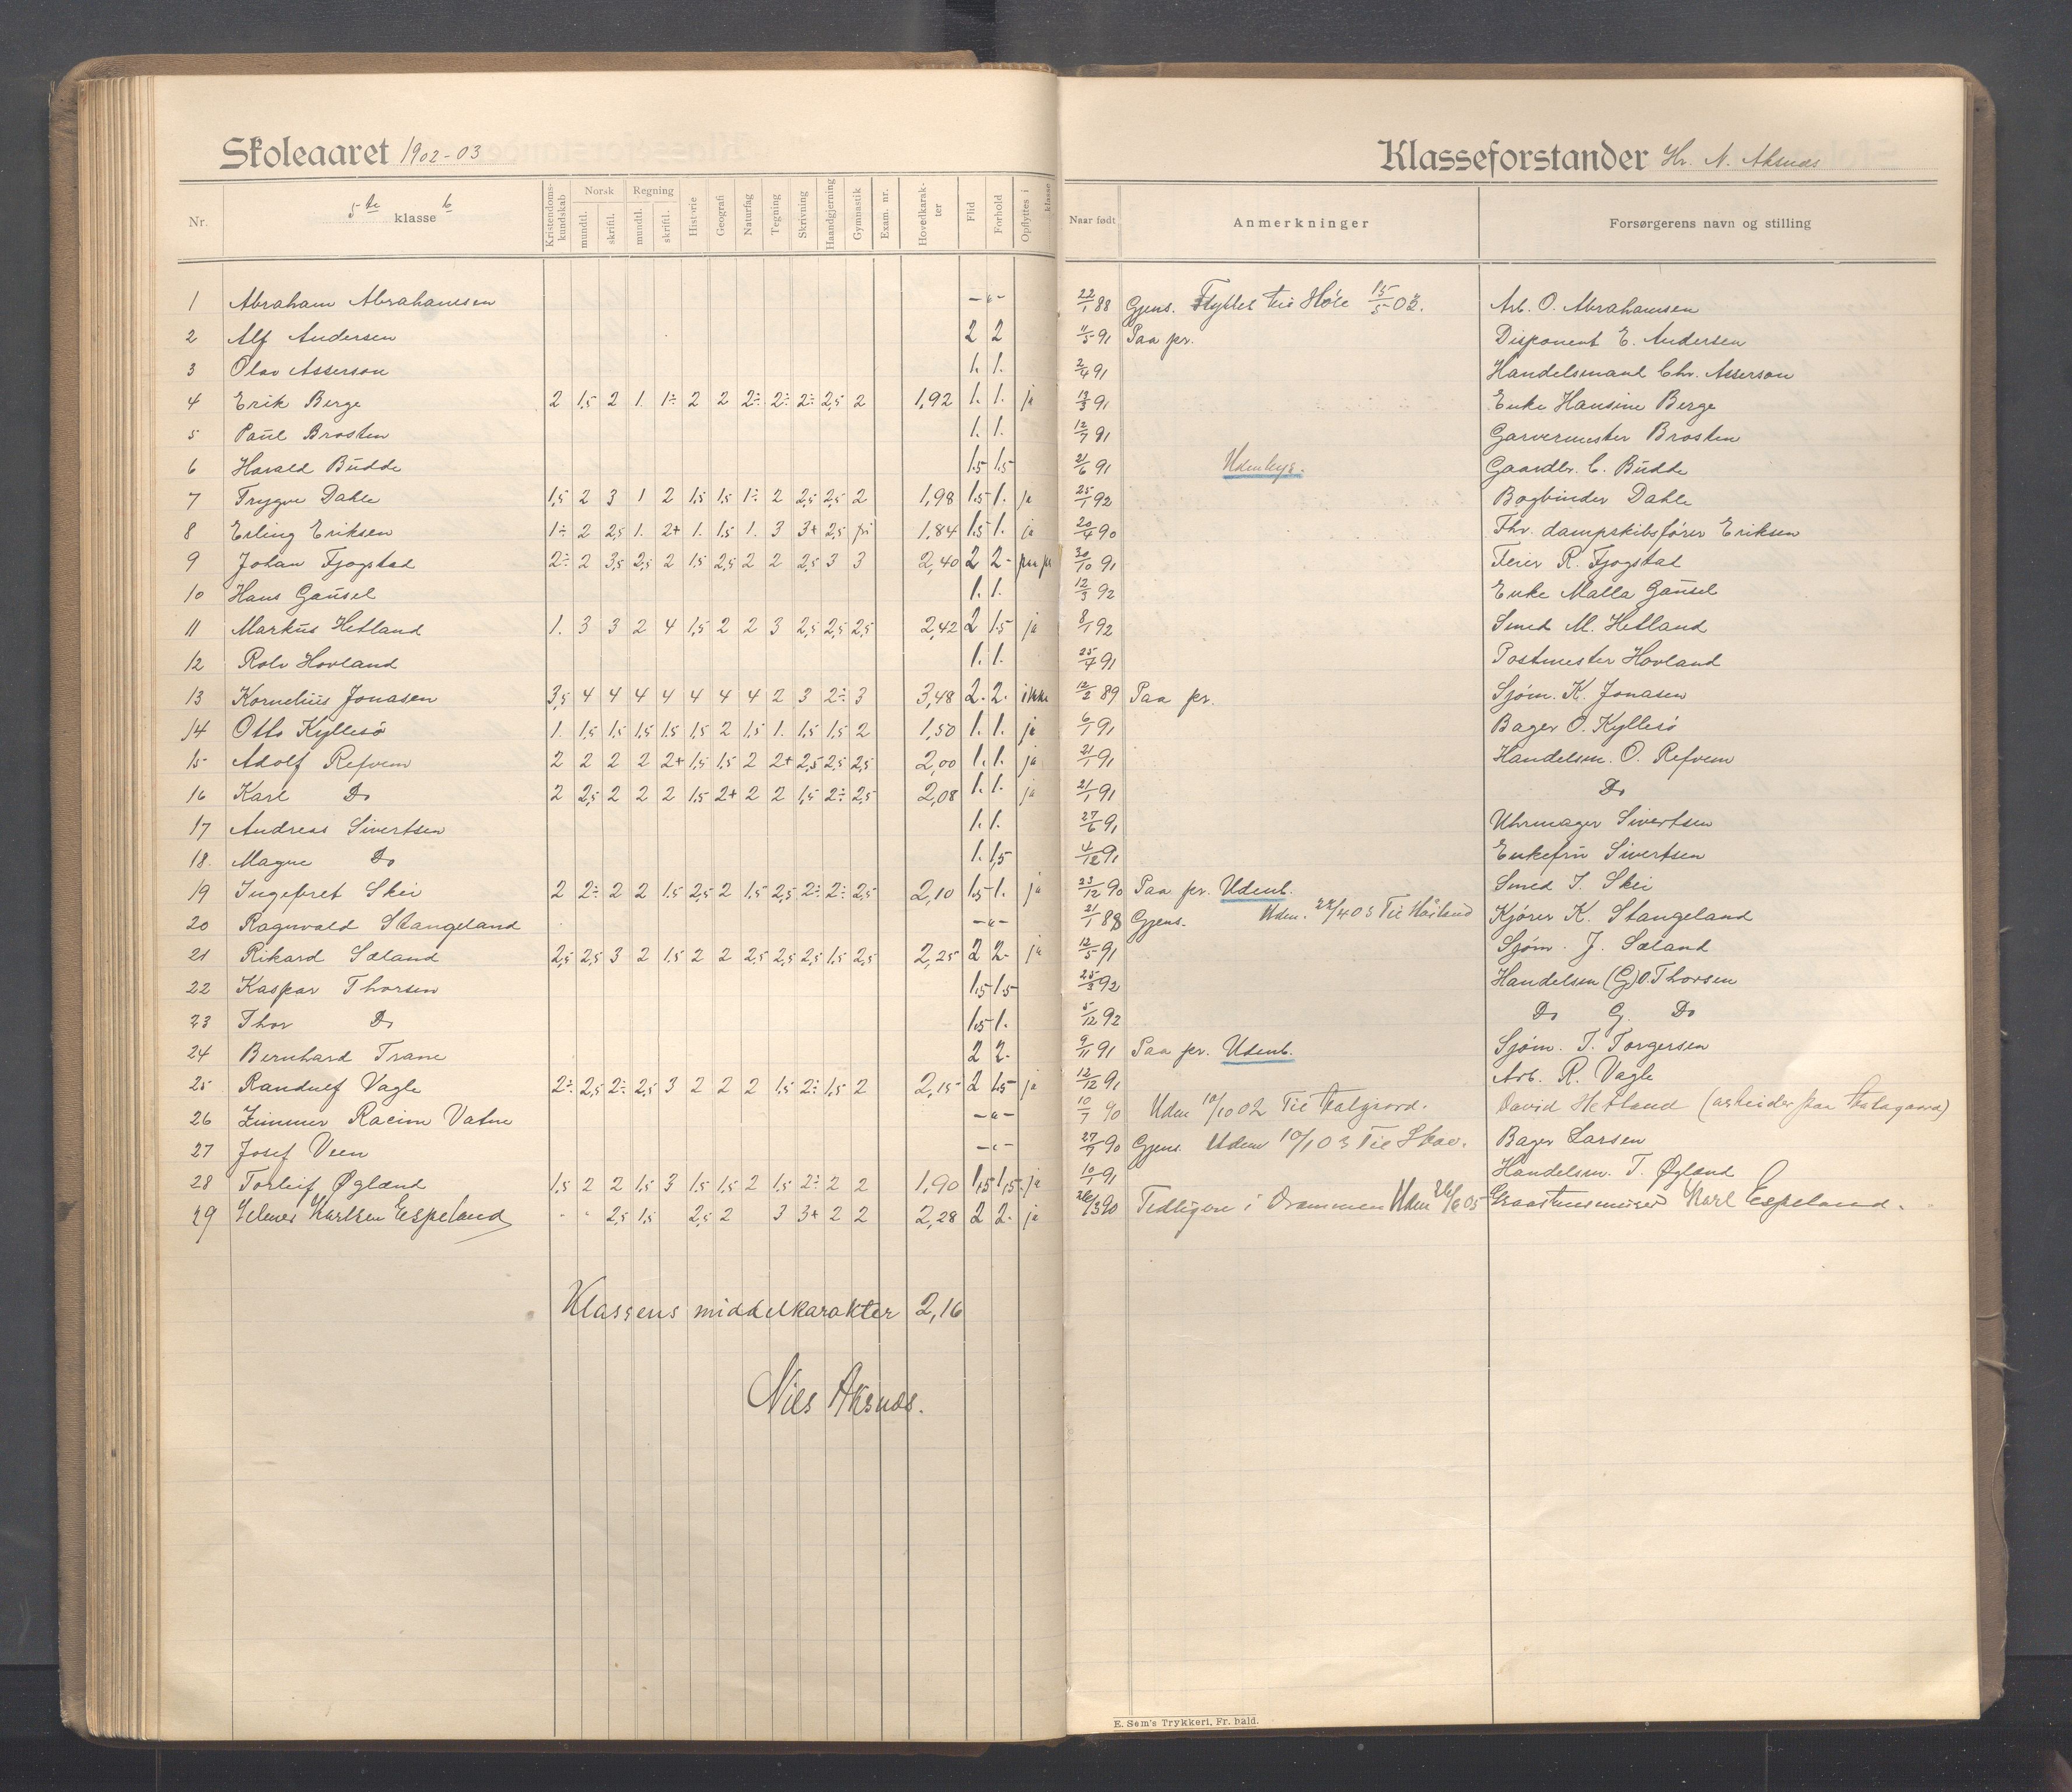 Skoleaaret 1902-03
Klasseforstander Hr. N. Aksnæs
Nr. 5te klasse b Kristendoms-kundskab Norsk mundtl. skriftl. Regning mundtl. skriftl. Historie Geografi Naturfag Tegning Skrivning Haandgjerning Gymnastik Exam. nr. Hovedkarak-ter Flid Forhold Opflyttes i klasse Naar født Anmerkninger Forsørgerens navn og stilling
1 Abraham Abrahamsen -"- 22/1 88 Gjens. Flyttet til Høle 15/5 03. Arb. O. Abrahamsen
2 Alf Andersen 2 2 11/5 91 Paa pr. Disponent E. Andersen
3 Olav Asserson 1. 1. 2/4 91 Handelsmand Chr. Asserson
4 Erik Berge 2 1,5 2 1. 1÷ 2 2 2÷ 2÷ 2÷ 2,5 2 1,92 1. 1. ja 13/3 91 Enke Hansine Berge
5 Paul Brosten 1. 1. 12/7 91 Garvermester Brosten
6 Harald Budde 1.5 1.5 21/6 91 Udenbys. Gaardbr. C. Budde
7 Trygve Dahle 1,5 2 3 1 2 1,5 1,5 1÷ 2 2,5 2,5 2 1,98 1.5 1. ja 25/1 92 Bogbinder Dahle
8 Erling Eriksen 1÷ 2 2,5 1. 2+ 1. 1,5 1. 3 3+ 2,5 fri 1.84 1.5 1. ja 20/4 90 Fhv. dampskibsfører Eriksen
9 Johan Fjogstad 2÷ 2 3,5 2,5 2 1,5 2,5 2 2 2,5 3 3 2,40 2 2- paa pr 30/10 91 Feier R. Fjogstad
10 Hans Gausel 1. 1. 12/3 92 Enke Malla Gausel
11 Markus Hetland 1. 3 3 2 4 1,5 2 2 3 2,5 2,5 2,5 2,42 2 1.5 ja 8/1 92 Smed M. Hetland
12 Rolv Hovland 1. 1. 25/4 91 Postmester Hovland
13 Kornelius Jonasen 3,5 4 4 4 4 4 4 4 2 3 2÷ 3 3,48 2. 2. ikke 12/2 89 Paa pr. Sjøm. K. Jonasen
14 Otto Kyllesø 1. 1,5 1,5 1,5 1,5 1,5 2 1,5 1. 1,5 1,5 2 1,50 1. 1. ja 6/1 91 Bager O. Kyllesø
15 Adolf Refvem 2 2 2 2 2+ 1,5 1,5 2 2+ 2,5 2,5 2,5 2,00 1. 1. ja 21/1 91 Handelsm. O. Refvem
16 Karl Do 2 2,5 2 2 2 1,5 2+ 2 2 1,5 2÷ 2,5 2,08 1. 1. ja 21/1 91 Do
17 Andreas Sivertsen 1. 1. 27/6 91 Uhrmager Sivertsen
18. Magne Do 1. 1,5 4/12 91 Enkefru Sivertsen
19 Ingebret Skei 2 2÷ 2 2 1.5 2,5 2 1,5 2,5 2÷ 2÷ 2,5 2,10 1.5 1. ja 23/12 90 Paa pr. Udenb. Smed I. Skei
20 Ragnvald Stangeland -"- 21/1 88 Gjens. Uden. 22/4 03 Til Håland Kjører K. Stangeland
21 Rikard Sæland 2,5 2,5 3 2 1.5 2 2 2,5 2,5 2,5 1,5 2,5 2,25 2 2- ja 12/5 91 Sjøm. J. Sæland
22 Kaspar Thorsen 1.5 1.5 25/3 92 Handelsm (G) O. Thorsen
23 Thor Do 1.5 1. 5/12 92 Do G. Do
24 Bernhard Trane 2 2- 9/11 91 Paa pr. Udenb. Sjøm. T. Torgersen
25 Randulf Vagle 2÷ 2,5 2÷ 2,5 3 2 2 2 1.5 2÷ 1,5 2 2,15 2 1,5 ja 12/12 91 Arb. R. Vagle
26 Zimmer Racin Vatne -"- 10/7 90 Uden 10/10 02 Til David Hetland (arbeider paa
27 Josef Veen -"- 27/9 90 Gjens. Uden 10/1 03 Til Bager Larsen
28 Torleif Øgland 1,5 2 2 1,5 3 1,5 1,5 2 1,5 2÷ 2 2 1,90 1,5 1,5 ja 10/1 91 Handelsm. T. Øgland
29 Karlsen Espeland " " 2,5 1,5 2,5 2 3 3+ 2 2 2,28 2 2- ja 26/3 90 Tidligere i Drammen Uden 26/6 05 Karl Espeland.
Klassens middelkarakter 2,16
Nils Aksnæs.
E. Sem's Trykkeri, Fr. hald.